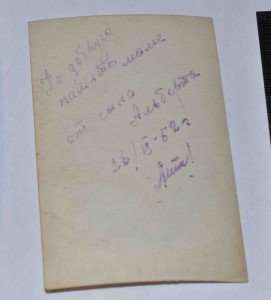 На добрую
память маме
от сына
Альберта
26/II-52г